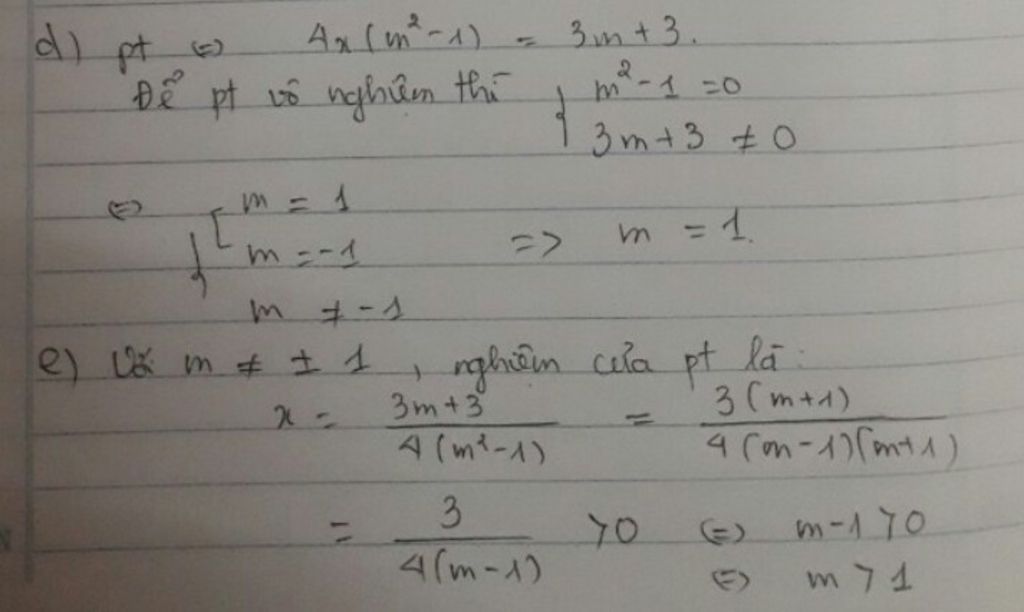 d) pt ⇔ 4x(m² - 1) = 3m + 3.
Để pt vô nghiệm thì { m² - 1 = 0
3m + 3 ≠ 0
⇔ { [ m = 1
m = -1 => m = 1.
m ≠ -1
e) Với m ≠ ± 1, nghiệm của pt là:
x = (3m + 3)/(4(m² - 1)) = (3(m + 1))/(4(m - 1)(m + 1))
= 3/(4(m - 1)) > 0 ⇔ m - 1 > 0
⇔ m > 1